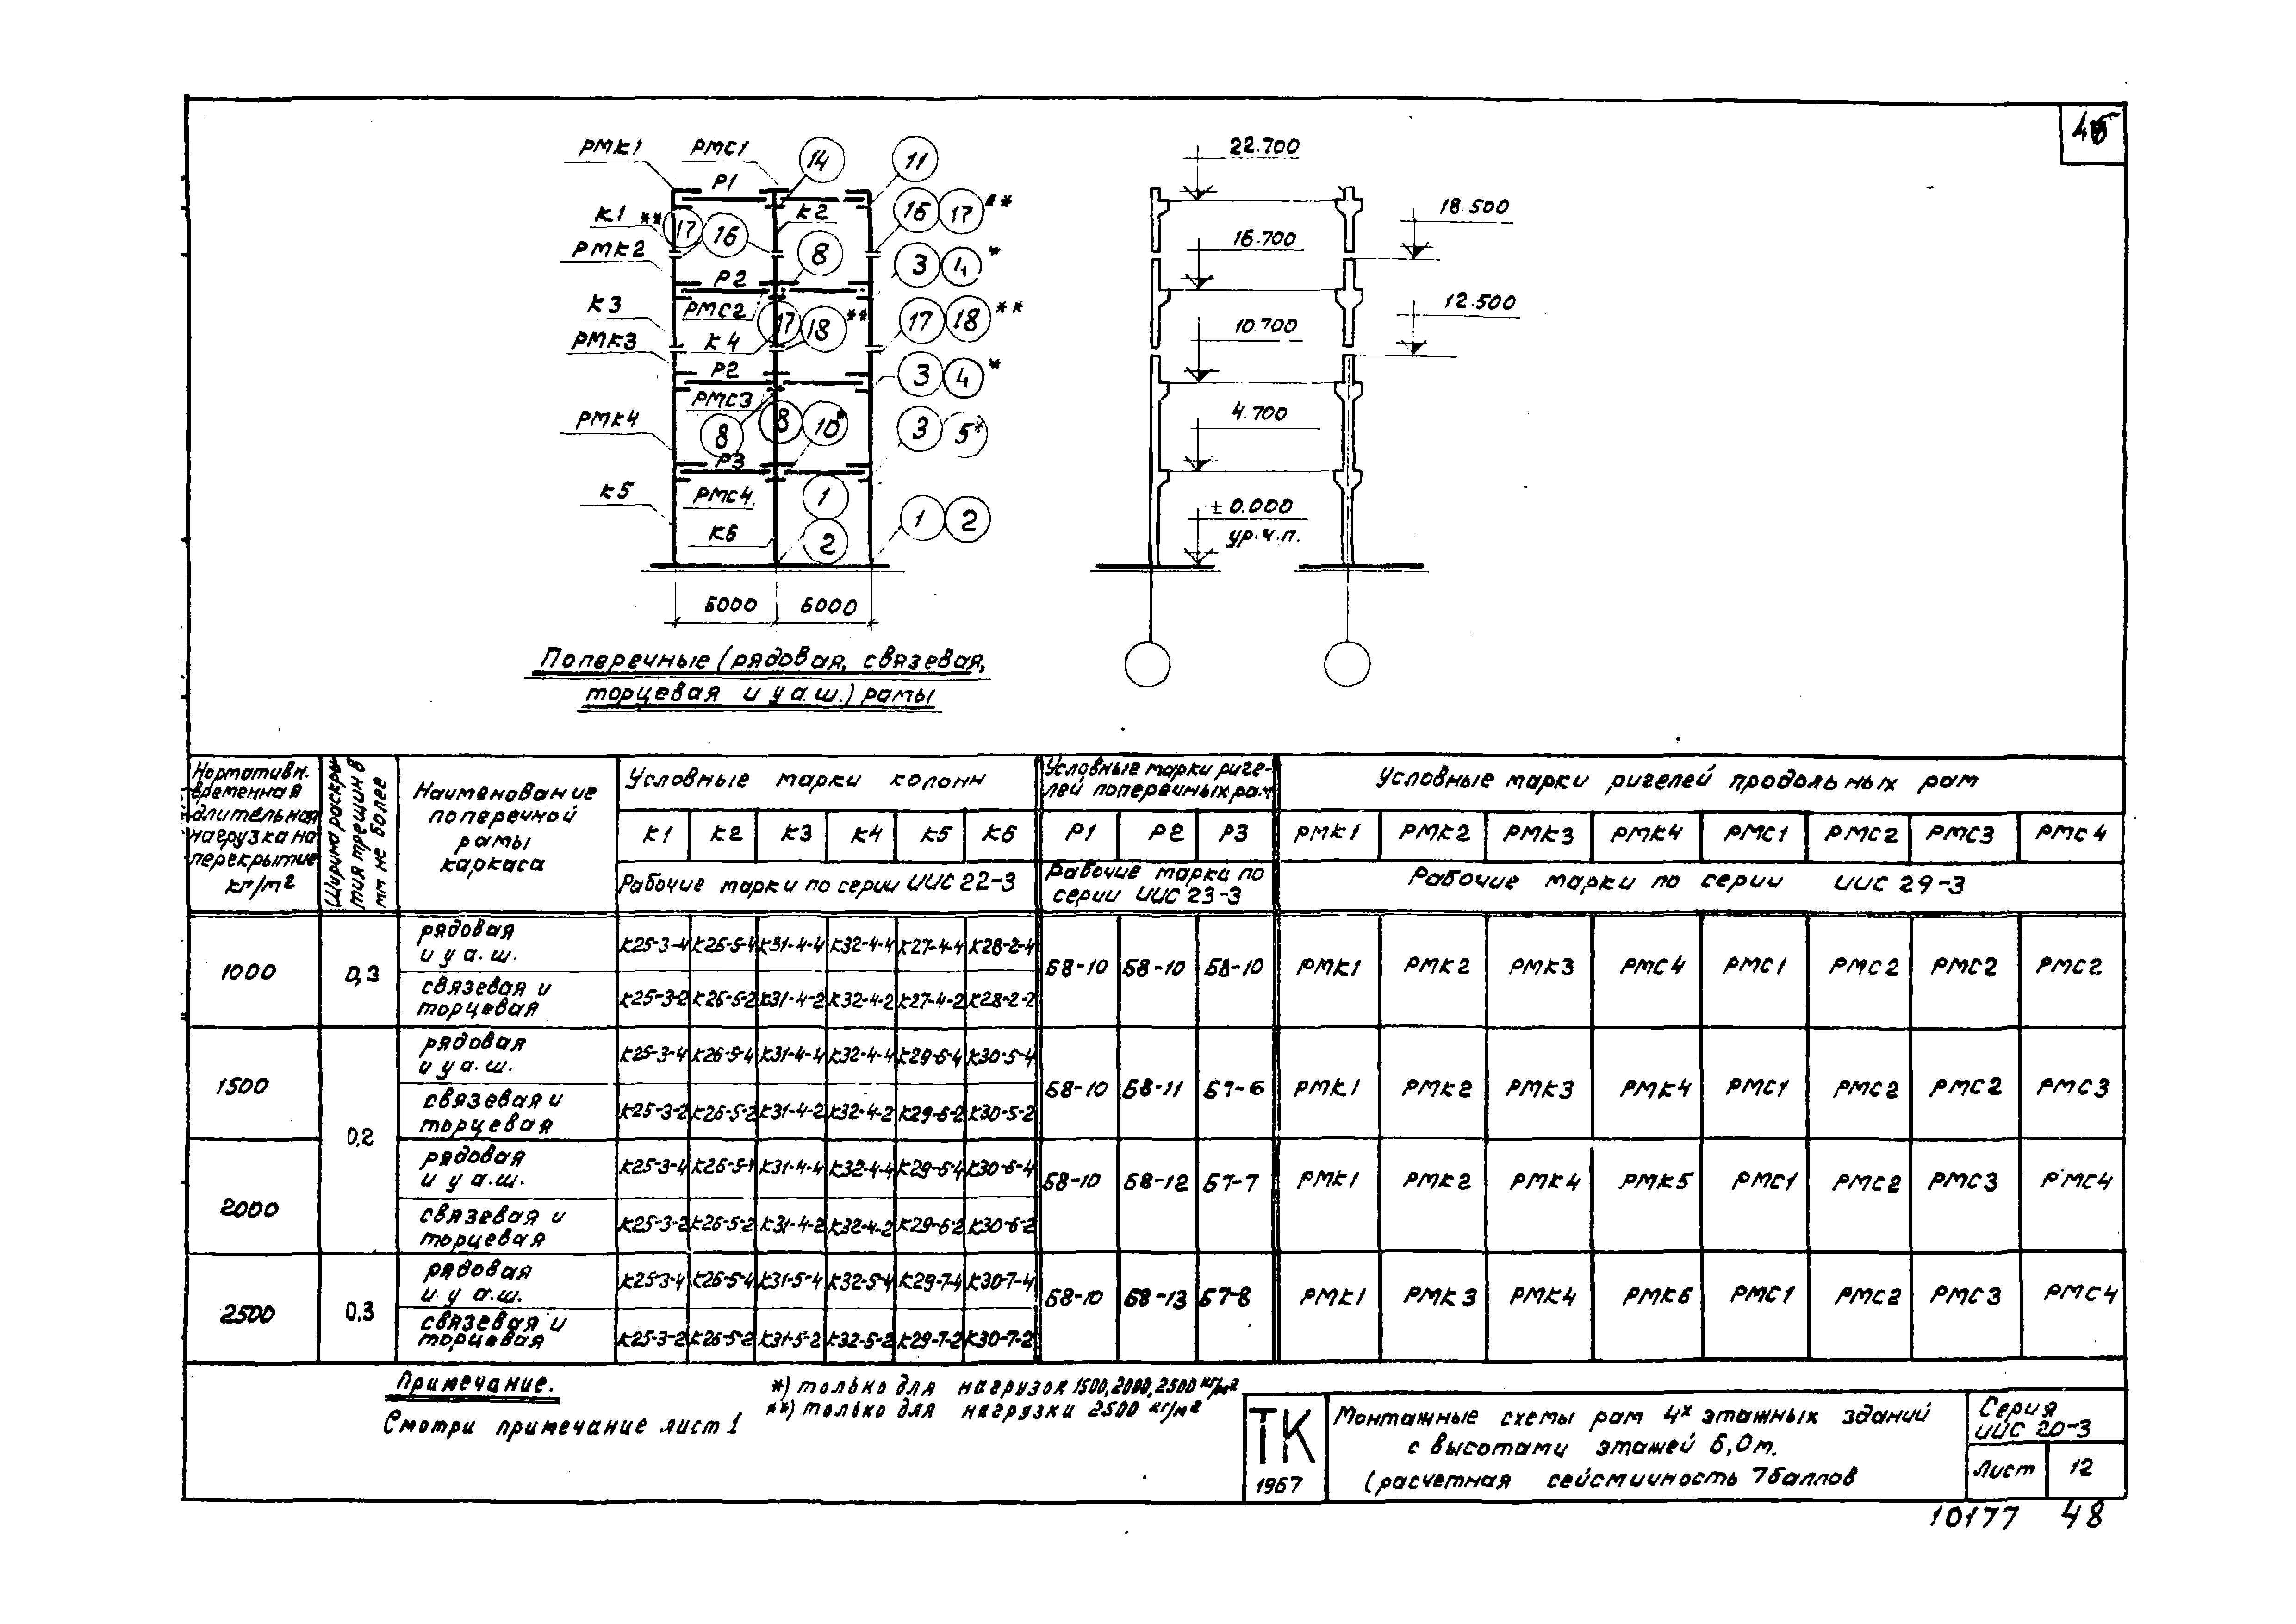 46
РМК1 РМС1 14 11
Р1
К1 ** 17 16 К2 16 17 **
РМК2 8 3 4 *
Р2
К3 РМС2 17 18 ** 17 18 **
РМК3 К4
Р2 3 4 *
РМС3
РМК4 8 8 10* 3 5*
Р3
К5 РМС4 1 1 2
К6 2
6000 6000
22.700
18.500
16.700
12.500
10.700
4.700
± 0.000
ур.ч.п.
Поперечные (рядовая, связевая,
торцевая и у а.ш.) рамы
Нормативн. временная длительная нагрузка на перекрытие кг/м²
Ширина раскрытия трещин в мм не более
Наименование поперечной рамы каркаса
Условные марки колонн
Условные марки ригелей поперечных рам
Условные марки ригелей продольных рам
К1 К2 К3 К4 К5 К6 Р1 Р2 Р3 РМК1 РМК2 РМК3 РМК4 РМС1 РМС2 РМС3 РМС4
Рабочие марки по серии ИИС 22-3
Рабочие марки по серии ИИС 23-3
Рабочие марки по серии ИИС 29-3
1000 0,3
рядовая и у а.ш. К25-3-4 К26-5-4 К31-4-4 К32-4-4 К27-4-4 К28-2-4
Б8-10 Б8-10 Б8-10 РМК1 РМК2 РМК3 РМС4 РМС1 РМС2 РМС2 РМС2
связевая и торцевая К25-3-2 К26-5-2 К31-4-2 К32-4-2 К27-4-2 К28-2-2
1500 0,2
рядовая и у а.ш. К25-3-4 К26-5-4 К31-4-4 К32-4-4 К29-6-4 К30-5-4
Б8-10 Б8-11 Б7-6 РМК1 РМК2 РМК3 РМК4 РМС1 РМС2 РМС2 РМС3
связевая и торцевая К25-3-2 К26-5-2 К31-4-2 К32-4-2 К29-6-2 К30-5-2
2000
рядовая и у а.ш. К25-3-4 К26-5-4 К31-4-4 К32-4-4 К29-6-4 К30-6-4
Б8-10 Б8-12 Б7-7 РМК1 РМК2 РМК4 РМК5 РМС1 РМС2 РМС3 РМС4
связевая и торцевая К25-3-2 К26-5-2 К31-4-2 К32-4-2 К29-6-2 К30-6-2
2500 0,3
рядовая и у а.ш. К25-3-4 К26-5-4 К31-5-4 К32-5-4 К29-7-4 К30-7-4
Б8-10 Б8-13 Б7-8 РМК1 РМК3 РМК4 РМК6 РМС1 РМС2 РМС3 РМС4
связевая и торцевая К25-3-2 К26-5-2 К31-5-2 К32-5-2 К29-7-2 К30-7-2
Примечание.
Смотри примечание лист 1
*) только для нагрузок 1500, 2000, 2500 кг/м²
**) только для нагрузки 2500 кг/м²
ТК
1967
Монтажные схемы рам 4х этажных зданий
с высотами этажей 6,0м.
(расчетная сейсмичность 7 баллов
Серия
ИИС 20-3
Лист 12
10177 48